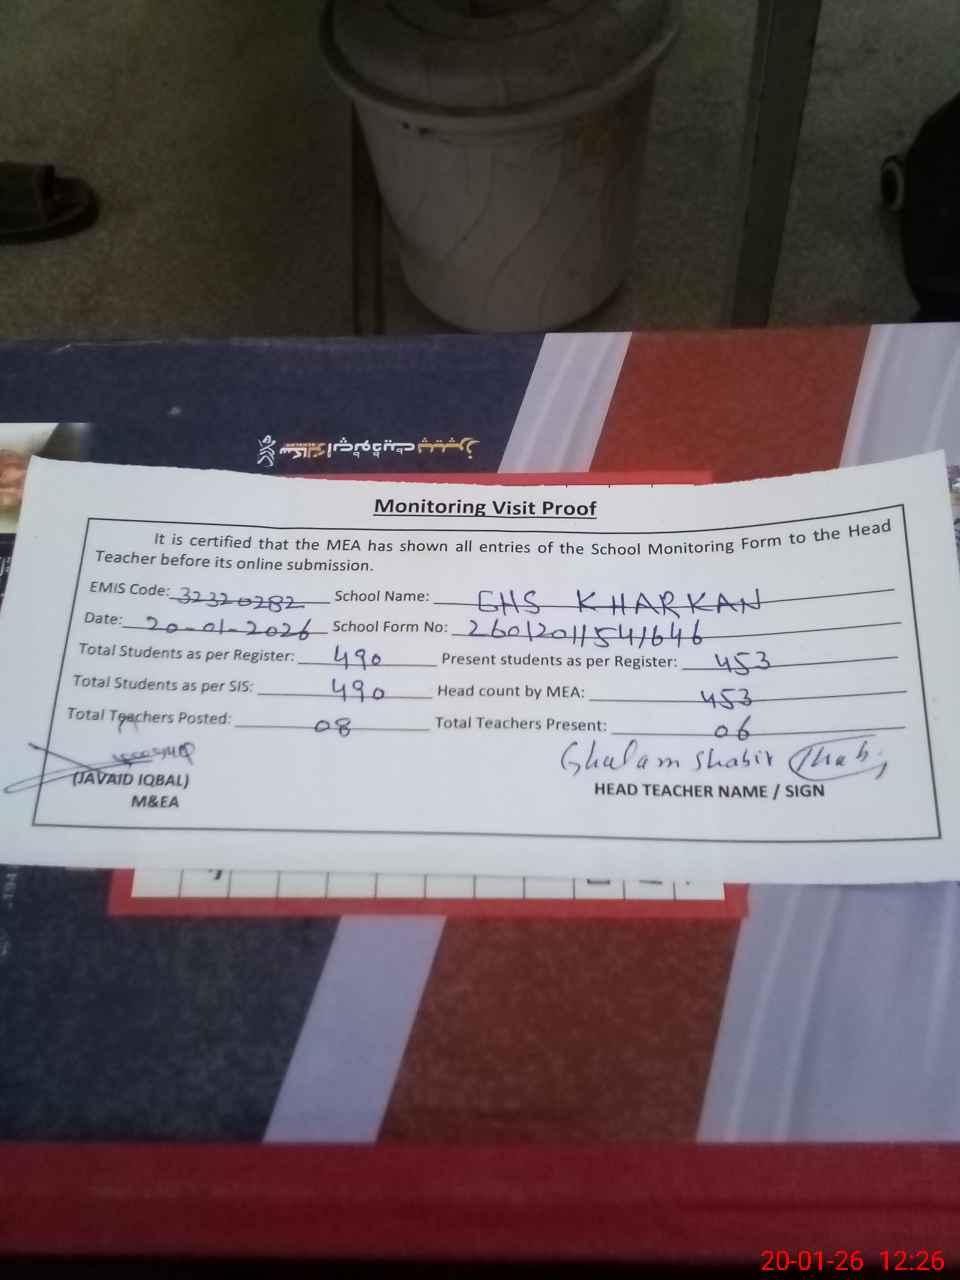 Monitoring Visit Proof
It is certified that the MEA has shown all entries of the School Monitoring Form to the Head
Teacher before its online submission.
EMIS Code: 32320282 School Name: GHS KHARKAN
Date: 20-01-2026 School Form No: 26012011541646
Total Students as per Register: 490 Present students as per Register: 453
Total Students as per SIS: 490 Head count by MEA: 453
Total Teachers Posted: 08 Total Teachers Present: 06
Ghulam Shabir
(JAVAID IQBAL)
HEAD TEACHER NAME / SIGN
M&EA
20-01-26 12:26